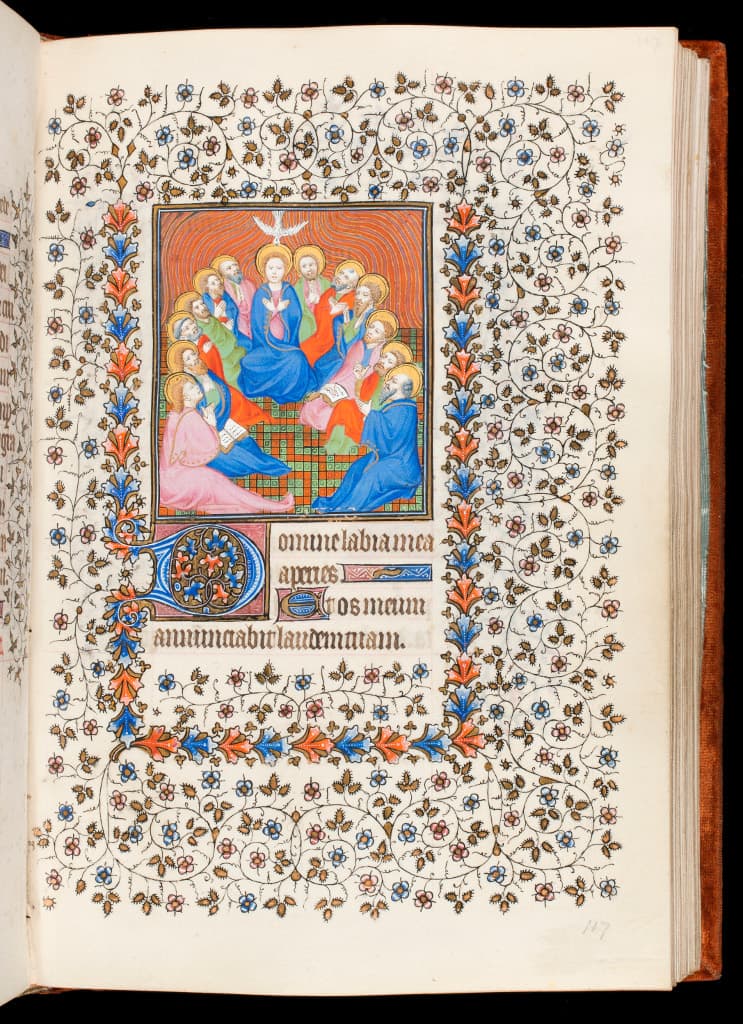 Domine labia mea
aperies
Et os meum
annunciabit laudem tuam.
117